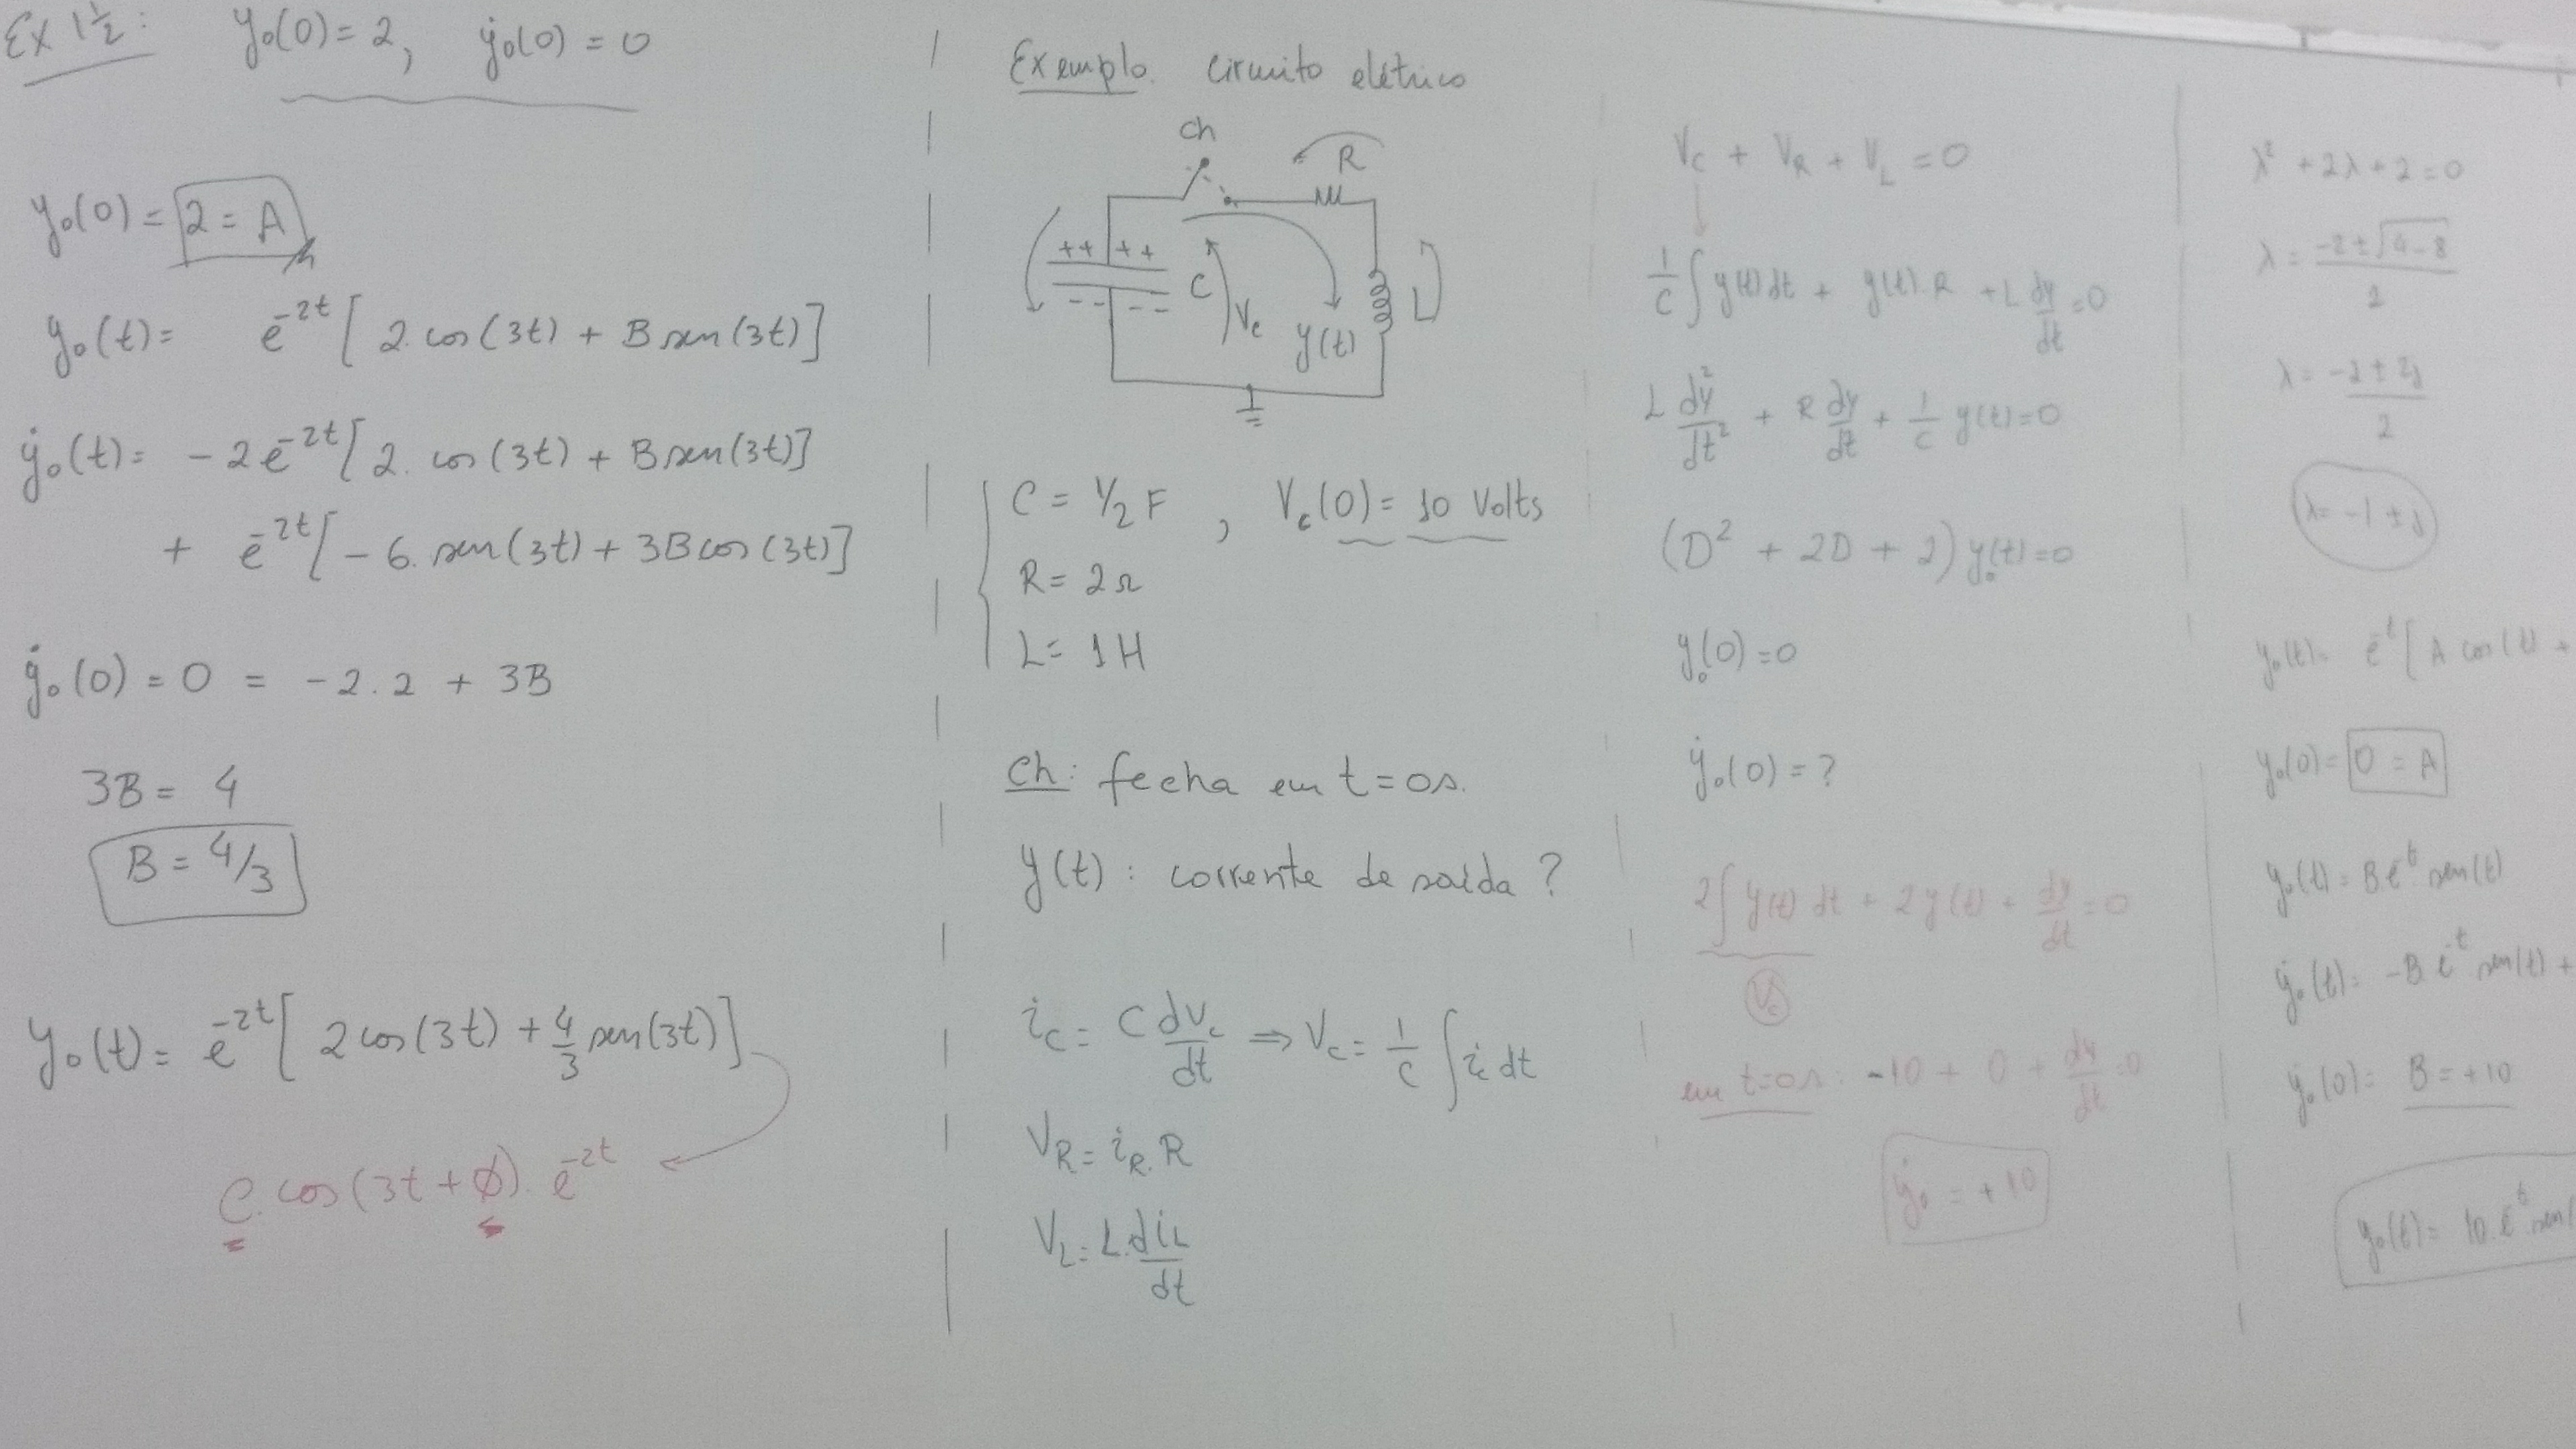 Ex 1½: y₀(0) = 2, ẏ₀(0) = 0
y₀(0) = 2 = A
y₀(t) = e^-2t [ 2. cos(3t) + B sen(3t)]
ẏ₀(t) = -2e^-2t [ 2. cos(3t) + B sen(3t)]
+ e^-2t [ -6. sen(3t) + 3B cos(3t)]
ẏ₀(0) = 0 = -2.2 + 3B
3B = 4
B = 4/3
y₀(t) = e^-2t [ 2 cos(3t) + 4/3 sen(3t)]
C. cos(3t + ϕ). e^-2t
Exemplo. Circuito elétrico
Ch
R
++ ++
-- --
C
Vc
y(t)
L
C = 1/2 F, Vc(0) = 10 Volts
R = 2Ω
L = 1H
Ch: fecha em t=0s.
y(t): corrente de saída?
ic = C dVc/dt ⇒ Vc = 1/C ∫ ic dt
VR = iR. R
VL = L. diL/dt
Vc + VR + VL = 0
1/C ∫ y(t) dt + y(t). R + L dy/dt = 0
L dy²/dt² + R dy/dt + 1/C y(t) = 0
(D² + 2D + 2) y₀(t) = 0
y₀(0) = 0
ẏ₀(0) = ?
2∫ y(t) dt + 2y(t) + dy/dt = 0
Vc
em t=0s: -10 + 0 + dy/dt = 0
ẏ₀ = +10
λ² + 2λ + 2 = 0
λ = -2 ± √4-8 / 2
λ = -2 ± 2j / 2
λ = -1 ± j
y₀(t) = e^-t [ A cos(t) +
y₀(0) = 0 = A
y₀(t) = B e^-t sen(t)
ẏ₀(t) = -B e^-t sen(t) +
ẏ₀(0) = B = +10
y₀(t) = 10. e^-t sen(